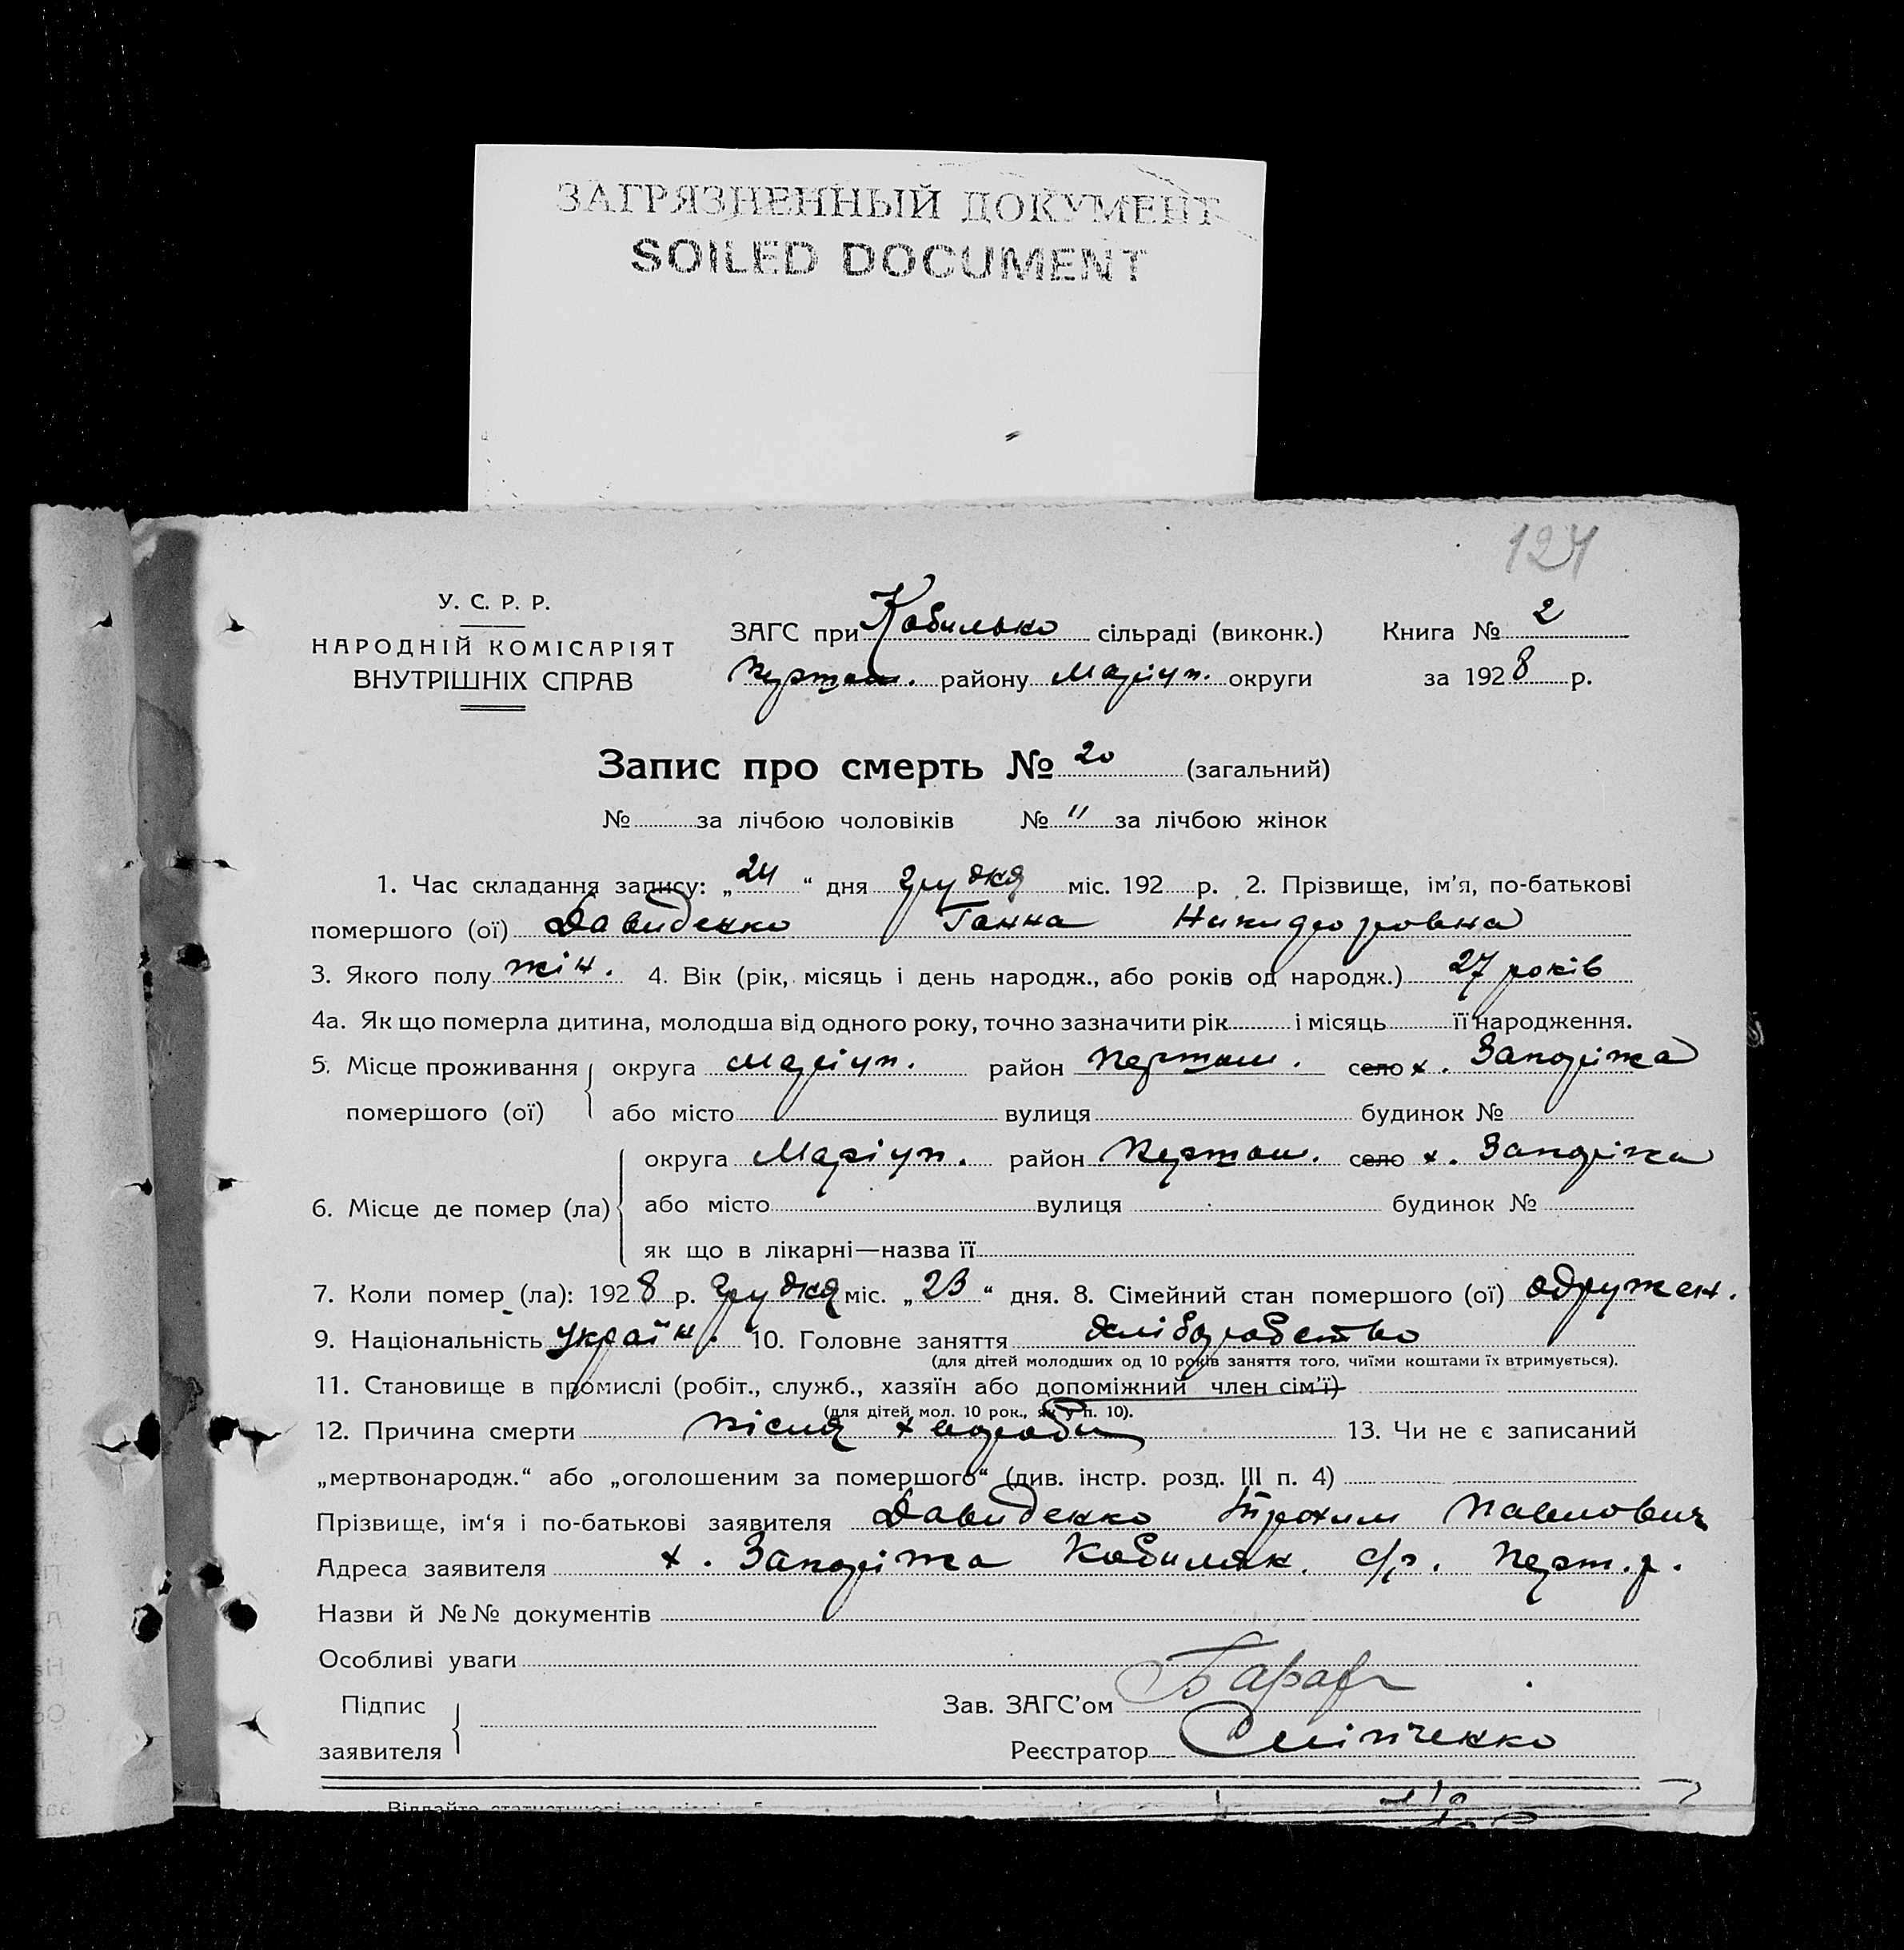 ЗАГРЯЗНЕННЫЙ ДОКУМЕНТ
SOILED DOCUMENT
124
У. С. Р. Р.
НАРОДНІЙ КОМІСАРІЯТ
ВНУТРІШНІХ СПРАВ
ЗАГС при Кобилько сільраді (виконк.) Книга № 2
района Маріуп. округи за 1928 р.
Запис про смерть № 20 (загальний)
№ за лічбою чоловіків № 11 за лічбою жінок
1. Час складання запису: „24“ дня грудня міс. 192 р. 2. Прізвище, ім’я, по-батькові
помершого (ої) Давиденко Ганна Никифоровна
3. Якого полу жін. 4. Вік (рік, місяць і день народж., або років од народж.) 27 років
4а. Як що померла дитина, молодша від одного року, точно зазначити рік і місяць її народження.
5. Місце проживання округа Маріуп. район село х. Запоріжа
помершого (ої) або місто вулиця будинок №
округа Маріуп. район село х. Запоріжа
6. Місце де помер (ла) або місто вулиця будинок №
як що в лікарні—назва її
7. Коли помер (ла): 1928 р. грудня міс. „23“ дня. 8. Сімейний стан помершого (ої) одружен.
9. Національність україн. 10. Головне заняття хліборобство
(для дітей молодших од 10 років заняття того, чиїми коштами їх втримується).
11. Становище в промислі (робіт., служб., хазяїн або допоміжний член сім’ї)
(для дітей мол. 10 рок., як у п. 10).
12. Причина смерти після хвороби 13. Чи не є записаний
„мертвонародж.“ або „оголошеним за помершого“ (див. інстр. розд. III п. 4)
Прізвище, ім‘я і по-батькові заявителя Давиденко Трохим Павлович
Адреса заявителя х. Запоріжа Кобиляк. с/р. р.
Назви й №№ документів
Особливі уваги
Підпис
заявителя
Зав. ЗАГС’ом
Реєстратор Сліпченко